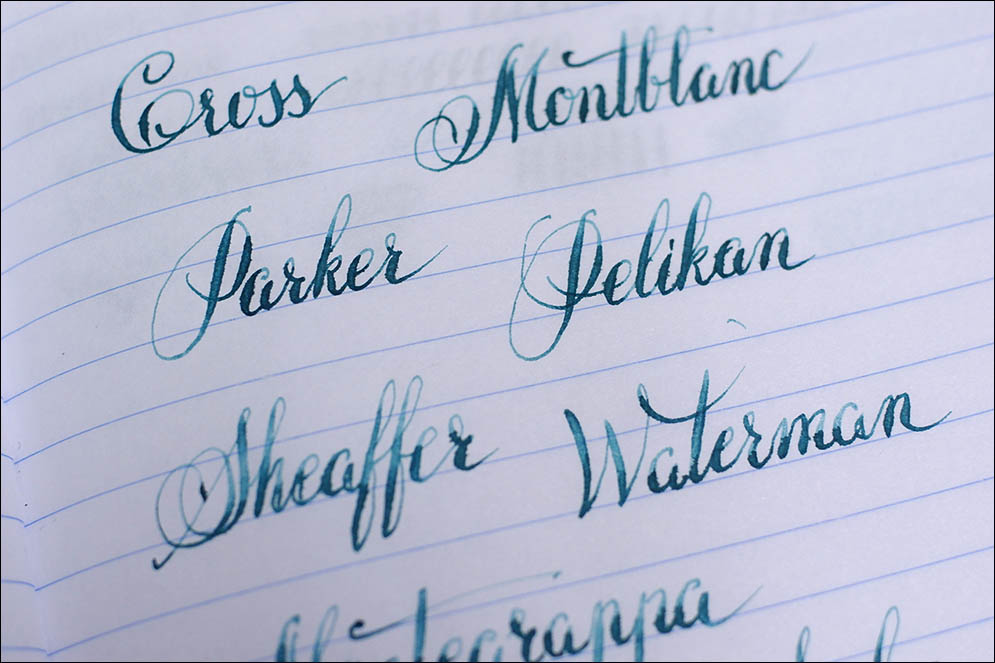 Cross Montblanc
Parker Pelikan
Sheaffer Waterman
Montegrappa